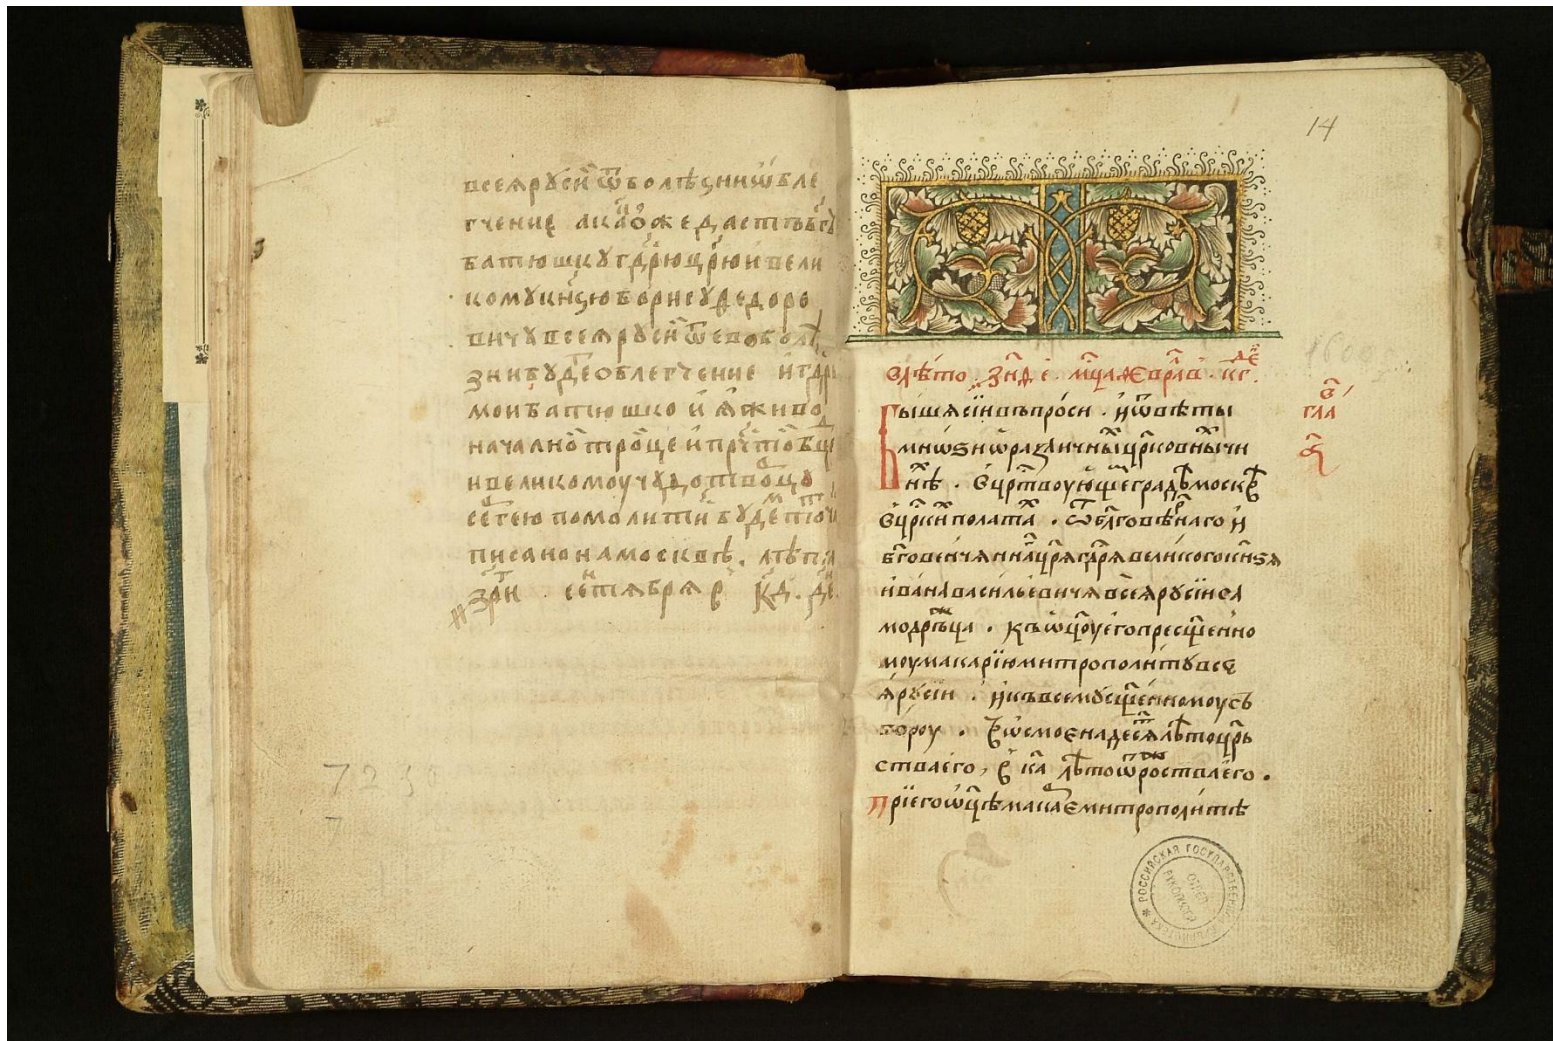 всеꙗ рꙋсїи ѿ болѣзни ѡбле
гчение а какоже дастъ бг҃ъ
батюшкꙋ гд҃рю цр҃ю и вели
комꙋ кнѕю борисꙋ ѳедоро
вичꙋ всеꙗ рꙋсїи ѿ ево болѣ
зни бꙋде облегчение и гд҃рь
мои батюшко и ꙗ живо
началнои троце и прч҃тои бц҃ы
и великомоу чюдотворцо
писано на москвѣ . лѣта
҂зри сентѧбрѧ р҃ к҃д . де
14
В лѣто ҂знд҃ е . мц҃а февралѧ . в к҃г . де
Быша сїи въпроси . и ѿвѣты
мнѡѕи ѡ различны цр҃ковны чи
нѣ . в цр҃твоующе градѣ москвѣ
в цр҃ки полата . ѿ бл҃говѣрнаго и
бг҃овенчаннa цр҃ѧ гд҃рѧ великого кн҃ѕѧ
ивана васильевича всеѧ рꙋсїи са
модръжца . къ ѡц҃оу его пресщ҃енно
моу макарїю митрополитꙋ все
ѧ рꙋсїи . и къ всемꙋ сщ҃енномоу съ
бороу . в ѡсмоенадесѧ лѣто цр҃ь
ства его , в ка лѣто ѿ роства его .
При его ѡц҃ѣ макаѐ митрополитѣ
гла
РОССИЙСКАЯ ГОСУДАРСТВЕННАЯ БИБЛИОТЕКА
ОТДЕЛ
РУКОПИСЕЙ